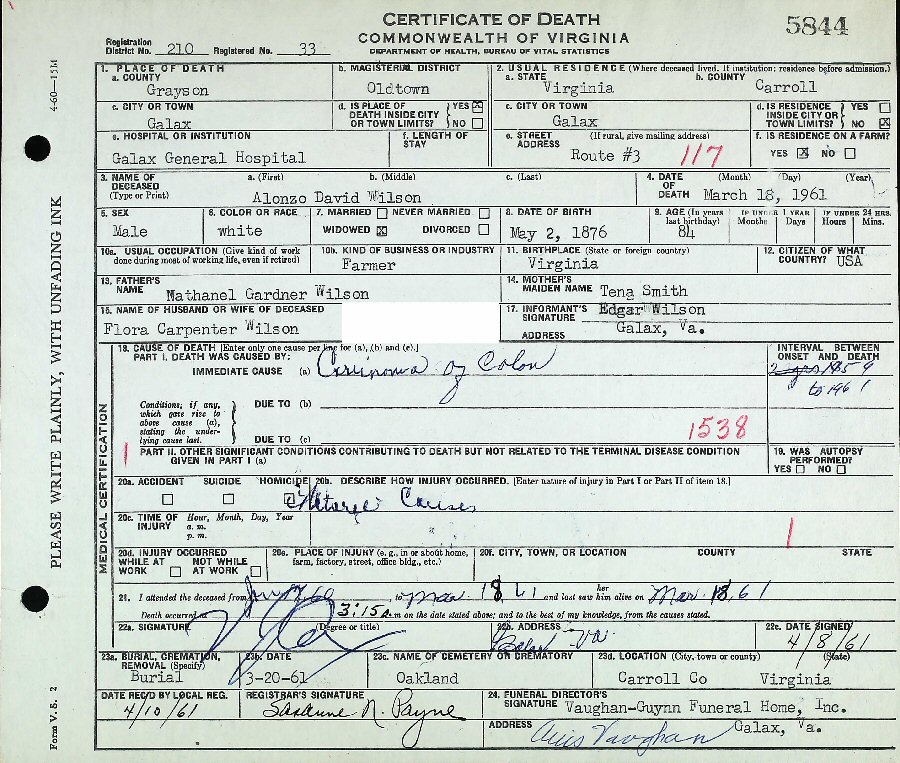 CERTIFICATE OF DEATH
COMMONWEALTH OF VIRGINIA
DEPARTMENT OF HEALTH, BUREAU OF VITAL STATISTICS
5844
Registration District No. 210 Registered No. 33
4-60—15M
PLEASE WRITE PLAINLY, WITH UNFADING INK
Form V. S. 2
1. PLACE OF DEATH
a. COUNTY
Grayson
b. MAGISTERIAL DISTRICT
Oldtown
2. USUAL RESIDENCE (Where deceased lived. If institution: residence before admission.)
a. STATE
Virginia
b. COUNTY
Carroll
c. CITY OR TOWN
Galax
d. IS PLACE OF DEATH INSIDE CITY OR TOWN LIMITS? YES NO
c. CITY OR TOWN
Galax
d. IS RESIDENCE INSIDE CITY OR TOWN LIMITS? YES NO
e. HOSPITAL OR INSTITUTION
Galax General Hospital
f. LENGTH OF STAY
e. STREET ADDRESS (If rural, give mailing address)
Route #3 117
f. IS RESIDENCE ON A FARM?
YES NO
3. NAME OF DECEASED (Type or Print)
a. (First) b. (Middle) c. (Last)
Alonzo David Wilson
4. DATE OF DEATH (Month) (Day) (Year)
March 18, 1961
5. SEX
Male
6. COLOR OR RACE
white
7. MARRIED NEVER MARRIED
WIDOWED DIVORCED
8. DATE OF BIRTH
May 2, 1876
9. AGE (In years last birthday)
84
IF UNDER 1 YEAR
Months Days
IF UNDER 24 HRS.
Hours Mins.
10a. USUAL OCCUPATION (Give kind of work done during most of working life, even if retired)
10b. KIND OF BUSINESS OR INDUSTRY
Farmer
11. BIRTHPLACE (State or foreign country)
Virginia
12. CITIZEN OF WHAT COUNTRY? USA
13. FATHER'S NAME
Nathanel Gardner Wilson
14. MOTHER'S MAIDEN NAME
Tena Smith
15. NAME OF HUSBAND OR WIFE OF DECEASED
Flora Carpenter Wilson
17. INFORMANT'S SIGNATURE
Edgar Wilson
ADDRESS
Galax, Va.
MEDICAL CERTIFICATION
18. CAUSE OF DEATH [Enter only one cause per line for (a), (b) and (c).]
PART I. DEATH WAS CAUSED BY:
IMMEDIATE CAUSE (a) Carcinoma of Colon
INTERVAL BETWEEN ONSET AND DEATH
2 yrs 1959
to 1961
Conditions, if any, which gave rise to above cause (a), stating the underlying cause last.
DUE TO (b)
DUE TO (c)
1538
PART II. OTHER SIGNIFICANT CONDITIONS CONTRIBUTING TO DEATH BUT NOT RELATED TO THE TERMINAL DISEASE CONDITION GIVEN IN PART I (a)
19. WAS AUTOPSY PERFORMED?
YES NO
20a. ACCIDENT SUICIDE HOMICIDE
20b. DESCRIBE HOW INJURY OCCURRED. [Enter nature of injury in Part I or Part II of item 18.]
Natural Causes
20c. TIME OF INJURY Hour, Month, Day, Year
a. m.
p. m.
20d. INJURY OCCURRED
WHILE AT WORK NOT WHILE AT WORK
20e. PLACE OF INJURY (e. g., in or about home, farm, factory, street, office bldg., etc.)
20f. CITY, TOWN, OR LOCATION COUNTY STATE
21. I attended the deceased from to Mar. 18 61 and last saw her alive on Mar. 18, 61
Death occurred at 3:15 a.m on the date stated above; and to the best of my knowledge, from the causes stated.
22a. SIGNATURE (Degree or title)
22b. ADDRESS
Galax Va.
22c. DATE SIGNED
4/8/61
23a. BURIAL, CREMATION, REMOVAL (Specify)
Burial
23b. DATE
3-20-61
23c. NAME OF CEMETERY OR CREMATORY
Oakland
23d. LOCATION (City, town or county) (State)
Carroll Co Virginia
DATE REC'D BY LOCAL REG.
4/10/61
REGISTRAR'S SIGNATURE
N. Payne
24. FUNERAL DIRECTOR'S SIGNATURE
Vaughan-Guynn Funeral Home, Inc.
ADDRESS
Vaughan
Galax, Va.